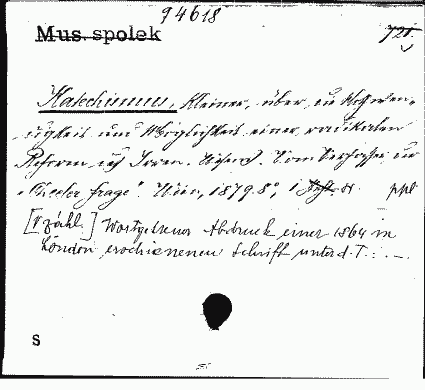 94618
Mus. spolek
721.
Katechismus, Kleiner, über die Nothwen-
digkeit und Möglichkeit einer radikalen
Reform des Irren- Vom Verfasser der
Frage". Wien, 1879. 8°, 1 ppb
[V zähl.] Wortgetreuer Abdruck einer 1864 in
London erschienenen Schrift unter d. T.: . —
S